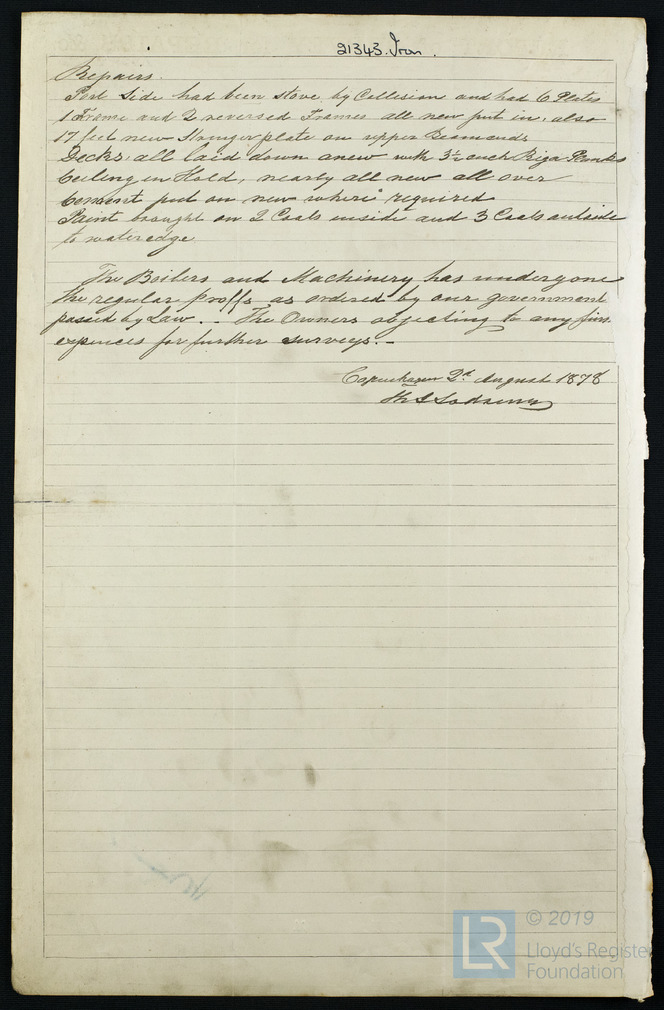 21343. Iron.
Repairs.
Port Side had been stove by Collision and had 6 Plates
1 Frame and 2 reversed Frames all new put in, also
17 feet new Stringer plate on upper Beamends
Decks, all laid down anew with 3½ inch Riga Planks
Ceiling in Hold, nearly all new all over
Cement put on new where required
Paint brought on 2 Coats inside and 3 Coats outside
to wateredge
The Boilers and Machinery has undergone
the regular proffs as ordered by our government
passed by Law. .. The Owners objecting to any
expences for further surveys. -
Copenhagen 2d. August 1878
© 2019
LR
Lloyd's Register
Foundation